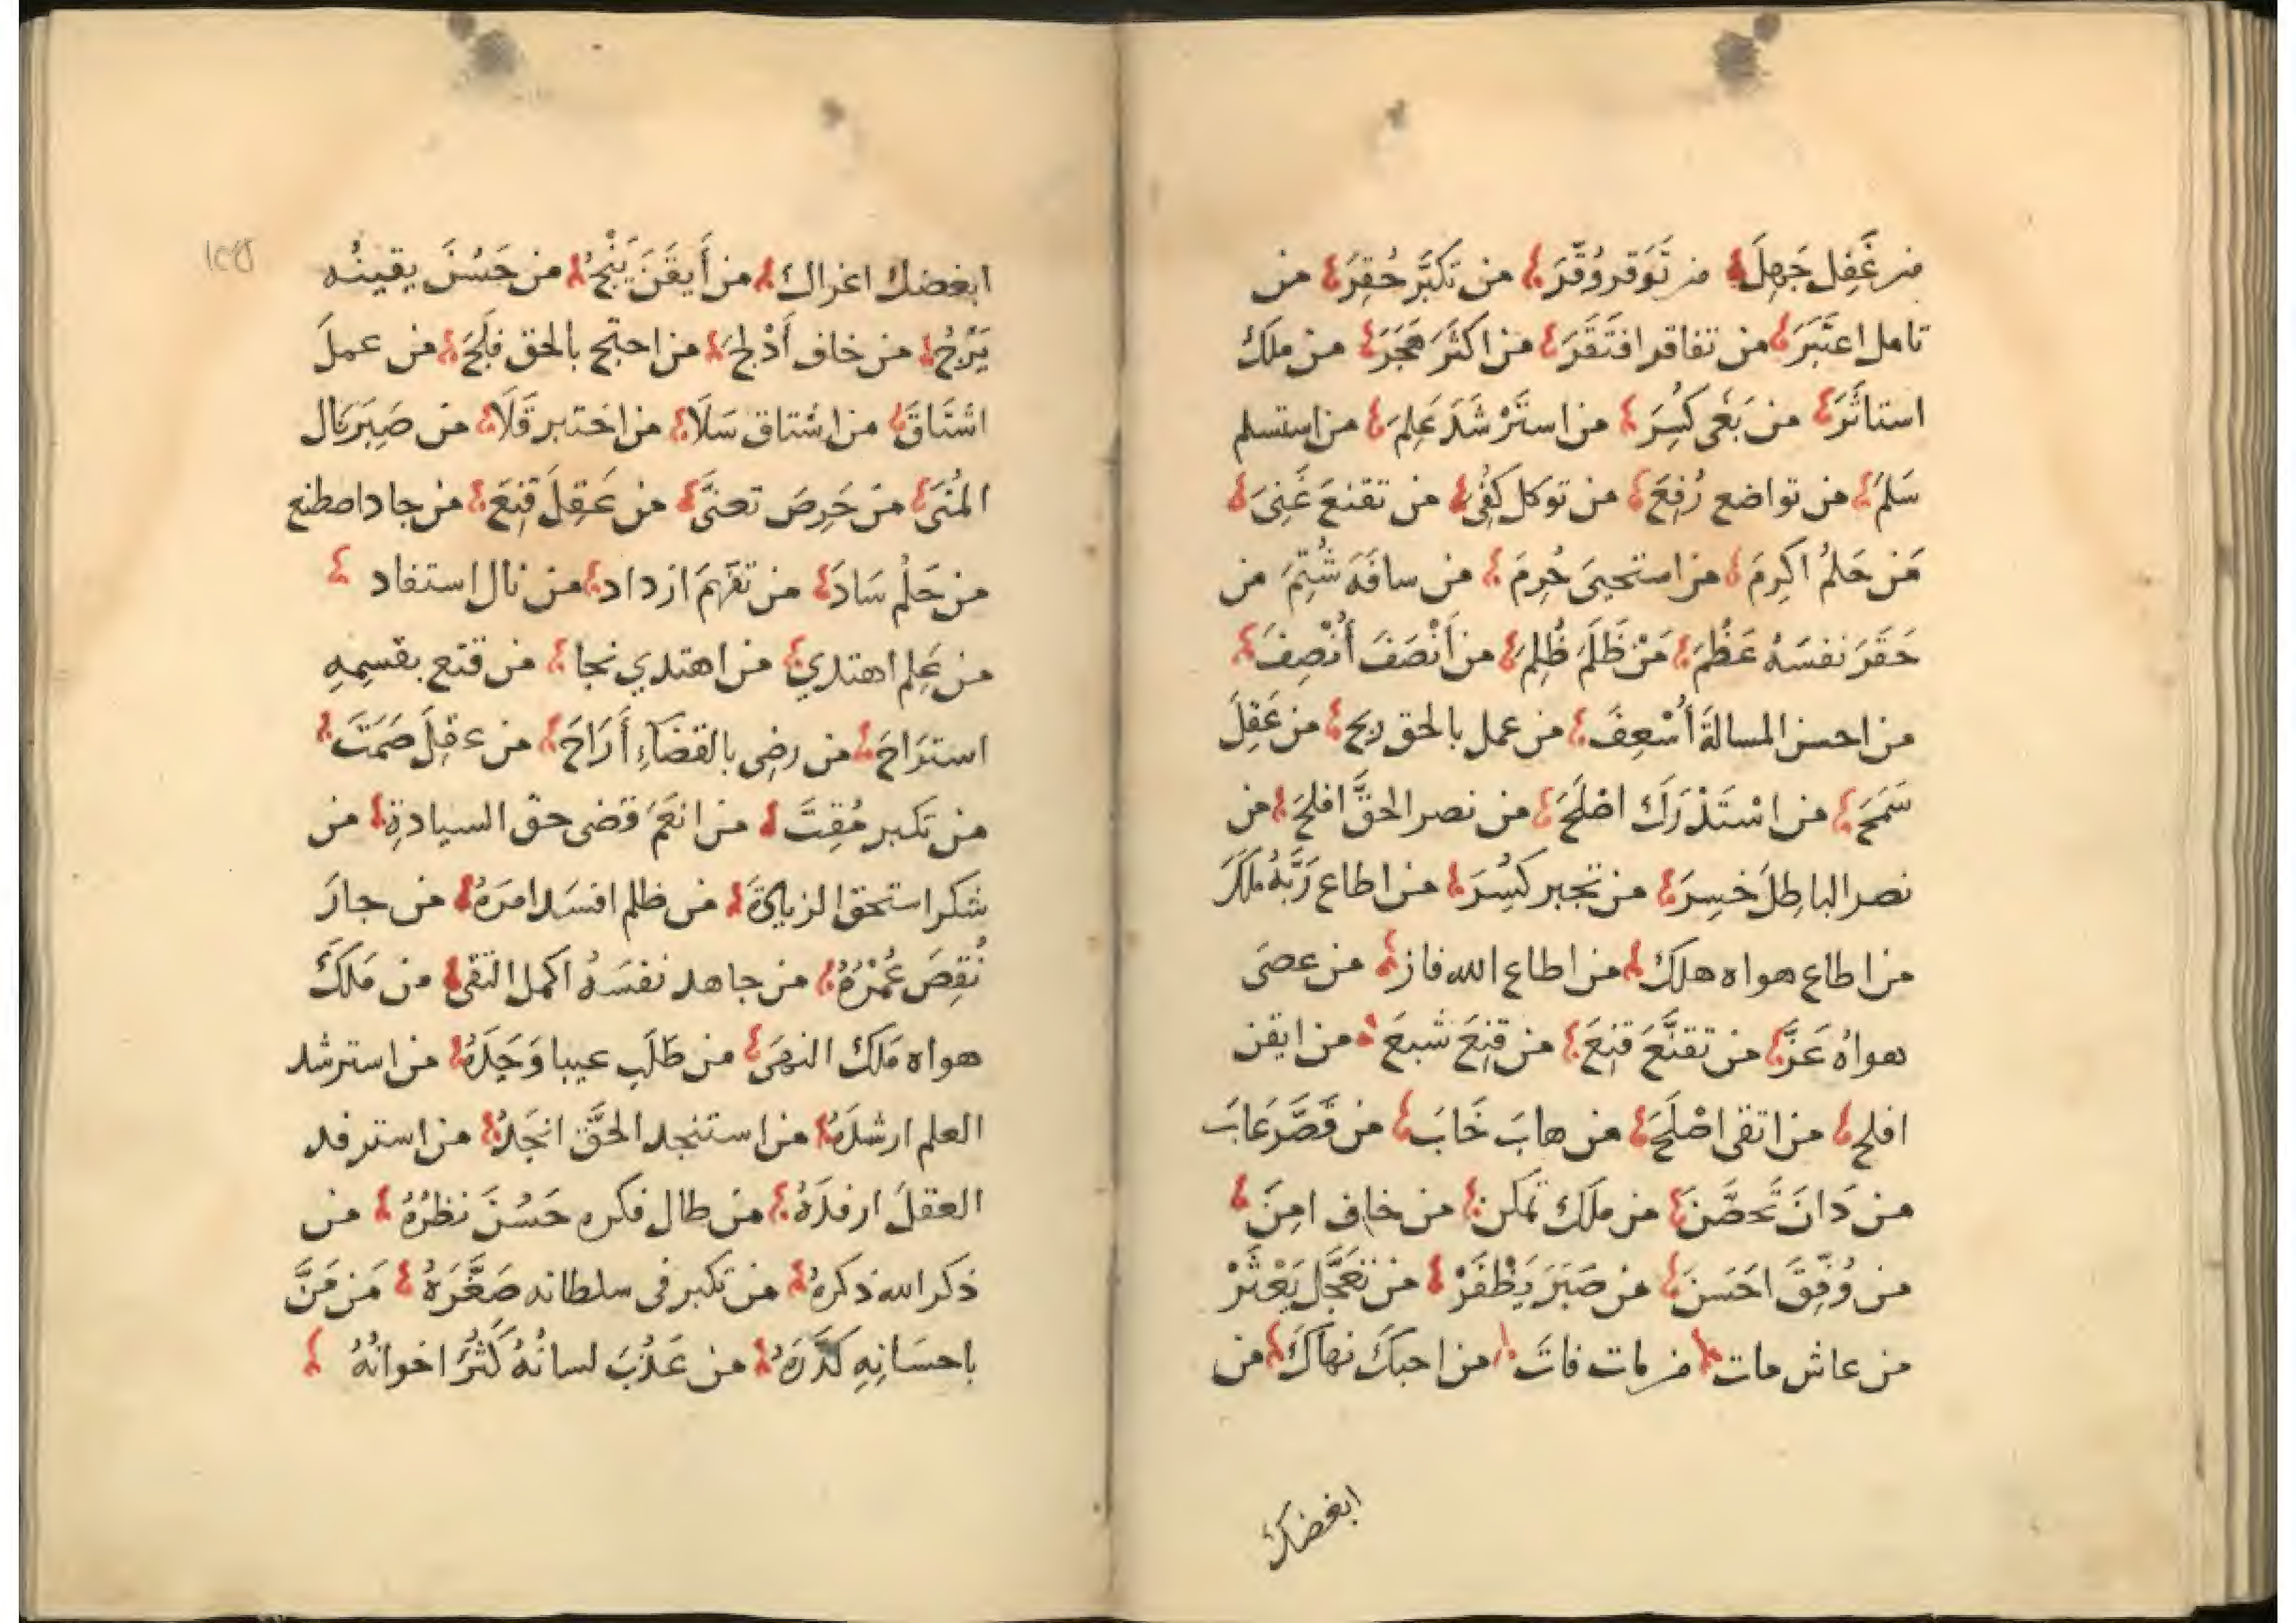 من غَفِل جَهِلَ من تَوَقر وُقِّرَ من تكبَّر حُقِرَ من
تامل اعتَبَرَ من تفاقر افتَقَرَ من اكثَرَ هَجَرَ من ملَكَ
استاثَرَ من بَغى كُسِرَ من استَرْشَدَ عَلِمَ من استسلم
سَلِمَ من تواضع رُفِعَ من توكل كُفِىَ من تقنعَ غَنِىَ
مَن حَلمُ اكرِمَ من استحيىَ حُرِمَ من سافَهَ شُتِمَ من
حَقَرَ نفسَهُ عَظُمَ مَنْ ظَلَمَ ظُلِمَ من أَنْصَفَ أُنْصِفَ
من احسن المسالةَ أُسْعِفَ من عمل بالحق ربح من عَقِلَ
سَمَحَ من اسْتَدْرَكَ اصْلَحَ من نصر الحقَّ افلحَ من
نصر الباطِلَ خسِرَ من تجبر كُسِرَ من اطاع رَبَّهُ مَلَكَ
من اطاع هواه هلكَ من اطاع الله فاز من عصَى
هواهُ عَزَّ من تقنَّعَ قنِعَ من قنِعَ شبعَ من ايقن
افلح من اتقى اصْلَحَ من هابَ خَابَ من قَصَّرَ عَابَ
من دَانَ تَحصَّنَ من مَلَكَ تمكن من خاف امِنَ
من وُفِّقَ احَسَنَ من صَبَرَ يَظْفَرْ من تَعَجَّل يَعْثَرْ
من عاش مات من مات فاتَ من احبكَ نهاكَ من
ابغضك
ابغضك اغراك من أَيقَنَ يَنْجُ من حَسُنَ يقينُه
يَرْجُ من خاف أَدْلجَ من احتج بالحق فَلَجَ من عملَ
اشتَاقَ من اشتاق سَلَا من اختبر قَلَا من صَبَرَ نال
المُنَى من حَرِصَ تعنَّى من عَقِلَ قنِعَ من جاد اصطنع
من حَلُم سَادَ من تفَهمَ ازداد من نال استفاد
من عَلِم اهتدي من اهتدي نجا من قنع بقسمِهِ
استرَاحَ من رضِى بالقضَآءِ أَرَاحَ من عقِلَ صَمَتَ
من تكبر مُقِتَ من انعَمَ قضى حق السيادةِ من
شكر استحق الزيادَةَ من ظلم افسَد امرَهُ من جارَ
نُقِصَ عُمْرُهُ من جاهد نفسَهُ اكمل التقى من مَلَكَ
هواه مَلَكَ النهَى من طَلَبِ عيبا وَجَدَهُ من استرشد
العلم ارشدَهُ من استنجد الحقَّ انجَدهُ من استرفد
العقلَ ارفدَهُ من طال فكره حَسُنَ نظرُهُ من
ذكر الله ذكرهُ من تكبر فى سلطانه صَغَّرَهُ مَن مَنَّ
باحسَانِهِ كَدَّرَهُ من عَذُبَ لسانُهُ كَثُرَ اخوانُهُ